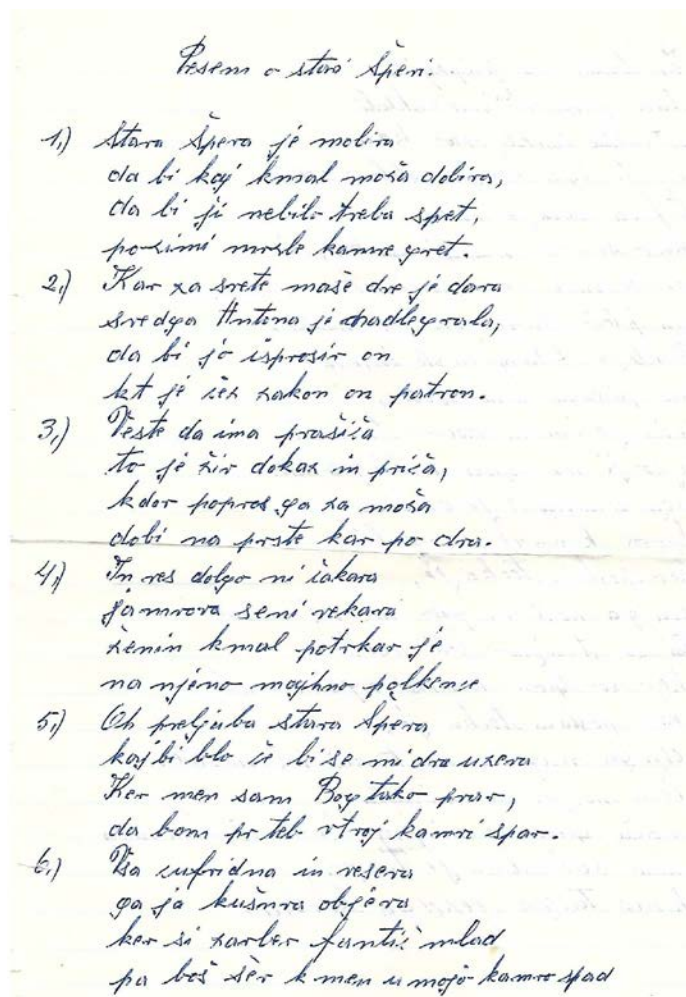 Pesem o stari Šperi.
1.) Stara Špera je molira
da bi kaj kmal moža dobira,
da bi ji nebilo treba spet,
pozimi mrzle kamre gret.
2.) Kar za svete maše dve je dara
svedga Antona je nadlegvala,
da bi jo isprosir on
kt je čez zakon on patron.
3.) Veste da ima prašiča
to je žir dokaz in priča,
kdor popros ga za moža
dobi na prste kar po dva.
4.) In res dolgo ni čakara
jamrova seni rekara
ženin kmal potrkar je
na njeno majhno polkence
5.) Oh preljuba stara Špera
kajbi blo če bi se midva uzera
Ker men sam Bog tako prav,
da bom pr teb vtvoj kamri spar.
6.) Vsa cufridna in vesera
ga ja kušnira objera
ker si zarber fantič mlad
pa boš šer k men u mojo kamro spad